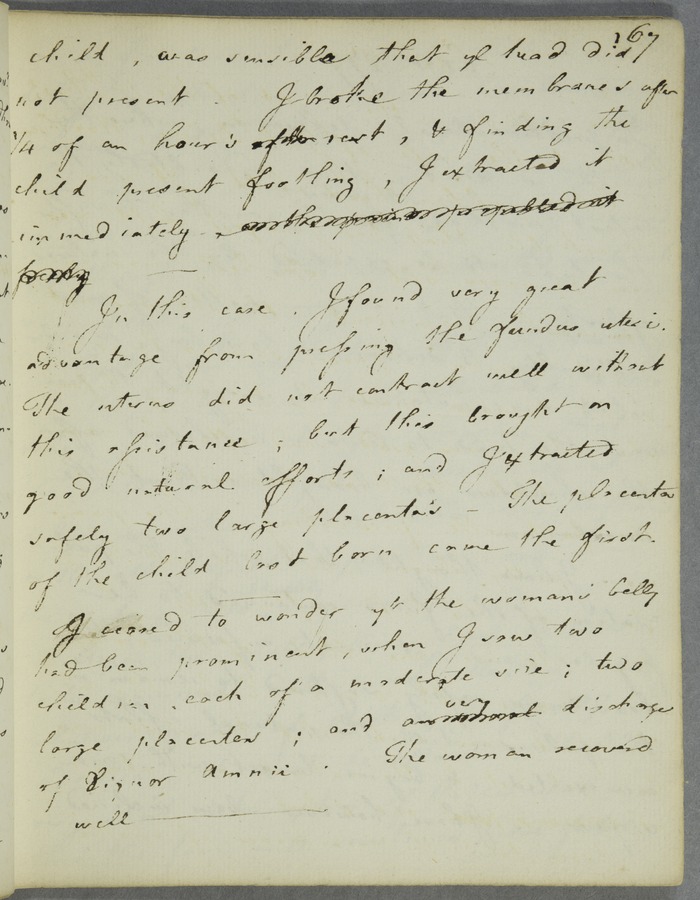 167
child, was sensible that ye head did
not present. I broke the membranes after
1/4 of an hour's after rest, & finding the
child present footling, I extracted it
immediately
In this case. I found very great
advantage from pressing the fundus uteri.
The uterus did not contract well without
this assistance; but this brought on
good natural efforts; and I extracted
safely two large placenta's – The placenta
of the child last born came the first.
I ceased to wonder yt the woman's belly
had been prominent, when I saw two
children each of a moderate size; two
very
large placentas; and a discharge
of Liquor Amnii. The woman recovered
well